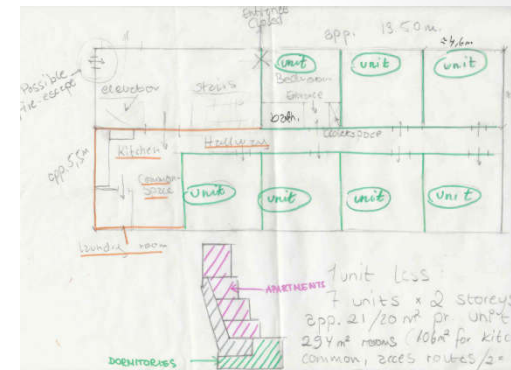 Entrance
Closed
app. 18.50 m.
±4,6m
unit
unit
unit
Possible
fire-escape
elevator
stairs
Bedroom
Entrance
bath.
Closetspace
Hallway
Kitchen
app 5,5m
Common
space
unit
unit
unit
unit
laundry room
APARTMENTS
DORMITORIES
1 unit less
7 units x 2 storeys
app. 21/20 m² pr. unit
294 m² rooms (106m² for kitc
common, acces routes/2